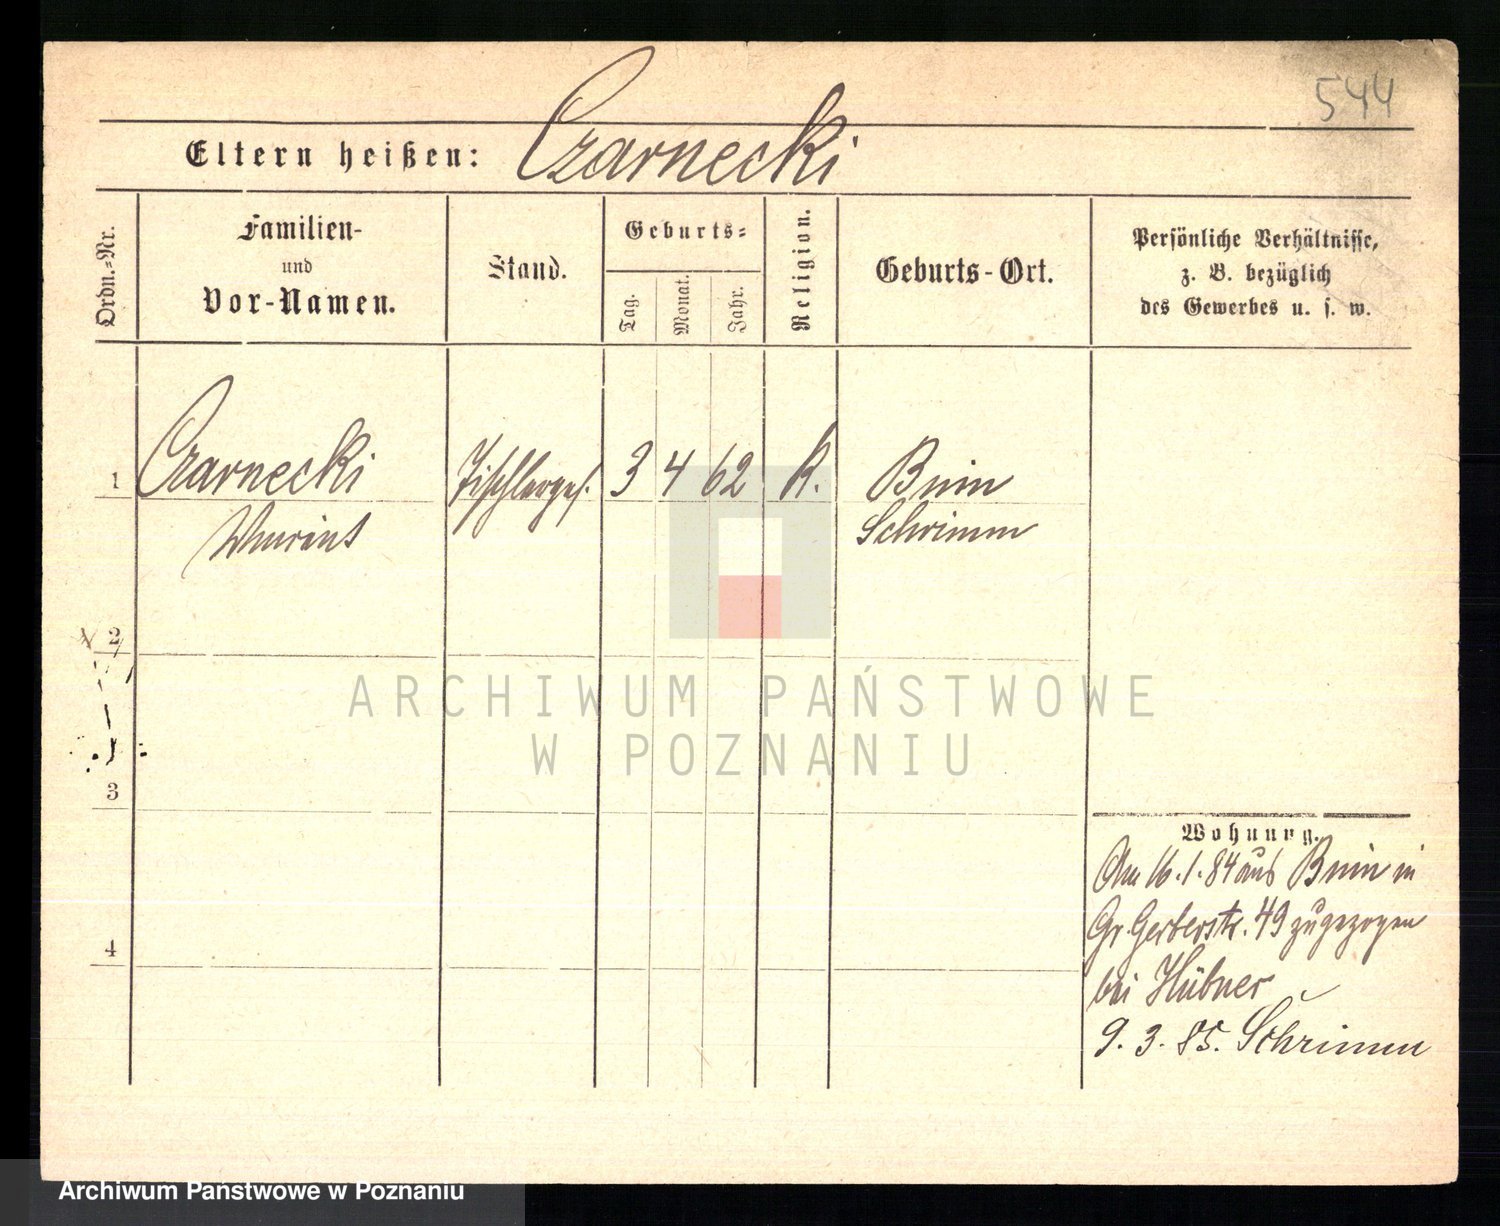 544
Eltern heißen: Czarnecki
Ordn.-Nr.
Familien-
und
Vor-Namen.
Stand.
Geburts-
Tag.
Monat.
Jahr.
Religion.
Geburts-Ort.
Persönliche Verhältnisse,
z. B. bezüglich
des Gewerbes u. s. w.
1 Czarnecki Tischlerges. 3 4 62 K. Bnin
Schrimm
2
3
4
ARCHIWUM PAŃSTWOWE
W POZNANIU
Wohnung.
Am 16.1.84 aus Bnin in
Gr. Gerberstr. 49 zugezogen
bei Hübner
9. 3. 85. Schrimm
Archiwum Państwowe w Poznaniu